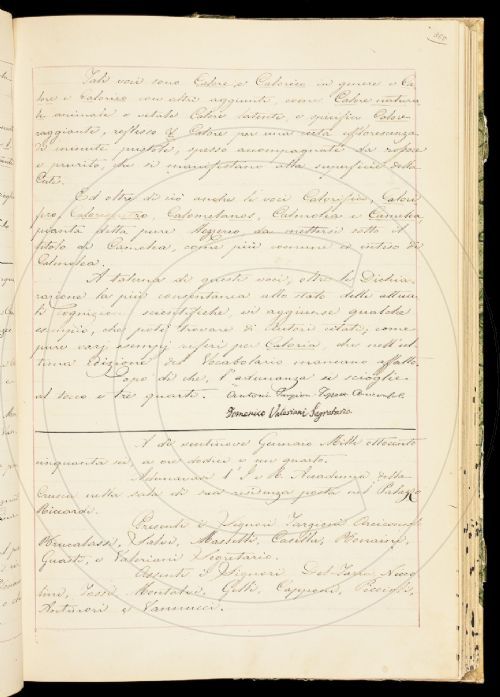 Tali voci sono Calore, e Calorico in genere e Ca-
lore e Calorico con altri aggiunti, come Calore natura-
le animale o vitale Calore latente, o specifico Calore
raggiante, reflesso Calore per una certa efflorescenza
di minute pustole, spesso accompagnate da rossore
e prurito, che si manifestano alla superficie della
Cute.
Ed oltre di ciò anche le voci Calorifico, Calori-
fero, Calorimetro, Calomelanos, Calmolea e Camelea
pianta detta pure da mettersi sotto il
titolo di Camelea, come più comune e inteso di
Calmolea.
A taluna di queste voci, oltre la Dichia-
razione la più consentanea allo stato delle attua-
li cognizioni scientifiche, si aggiunse qualche
esempio, che potè trovare di Autori citati, come
pure varj esempj riferì per Caloria, che nell'ul-
tima edizione del Vocabolario mancano affatto.
Dopo di che, l'adunanza si sciolse
al tocco e tre quarti. Antonio Targioni Tozzetti
Domenico Valeriani Segretario.
A dì ventinove Gennaro Mille ottocento
cinquanta sei, a ore dodici e un quarto.
Adunavasi l'I. e R. Accademia della
Crusca nella sala di sua residenza posta nel Palazzo
Riccardi.
Presenti i Signori Targioni Arciconsolo
Brucalassi, Salvi, Masselli, Casella, Bonaini,
Guasti, e Valeriani Segretario.
Assenti i Signori Del Furia, Nicco-
lini, Rossi Montalvi, Gelli, Capponi, Piccioli,
Antinori e Vannucci.